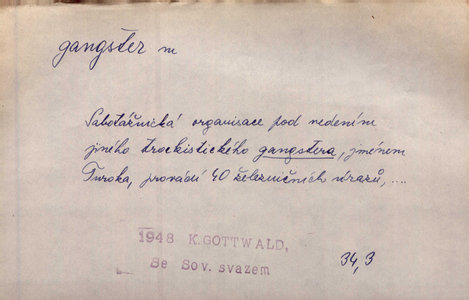 gangster m
Sabotážnická organisace pod vedením
jiného trockistického gangstera, jménem
Turoka, provádí 40 železničních srazů, ....
1948 K.GOTTWALD,
Se Sov. svazem
34,3